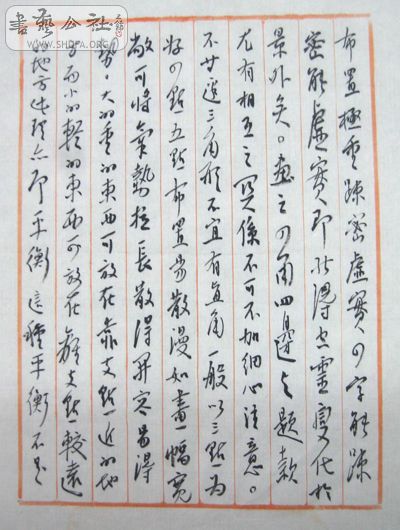 書藝公社
WWW.SHDFA.ORG
布置極重疎密虛實四字能疎
密能虛實即能得空靈變化於
景外矣。画之四角四邊与題款
尤有相互之関係不可不加細心注意。
不等邊三角形不宜有直角一般以三點為
好四點五點布置易散漫如畫一幅寬
敞可将氣勢拉長散得開容易得
勢。大的重的東西可放在靠支點近的地
方而小的輕的東西可放在離支點較遠
的地方此亦即平衡這種平衡不是